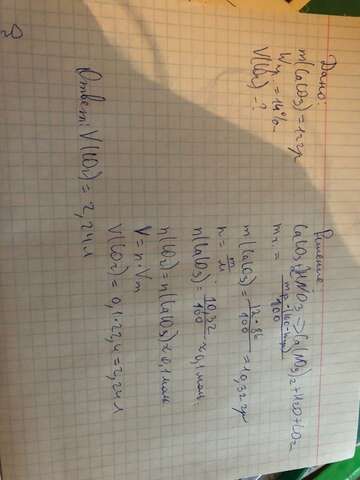 Дано:
m(CaCO3) = 12 гр
W пр. = 14%
V(CO2) - ?
Решение
CaCO3 + 2HNO3 => Ca(NO3)2 + H2O + CO2
mч = mр·(100-wпр) / 100
m(CaCO3) = 12·86 / 100 = 10,32 гр
n = m / M
n(CaCO3) = 10,32 / 100 ≈ 0,1 моль.
n(CO2) = n(CaCO3) ≈ 0,1 моль
V = n·Vm
V(CO2) = 0,1·22,4 = 2,24 л
Ответ: V(CO2) = 2,24 л